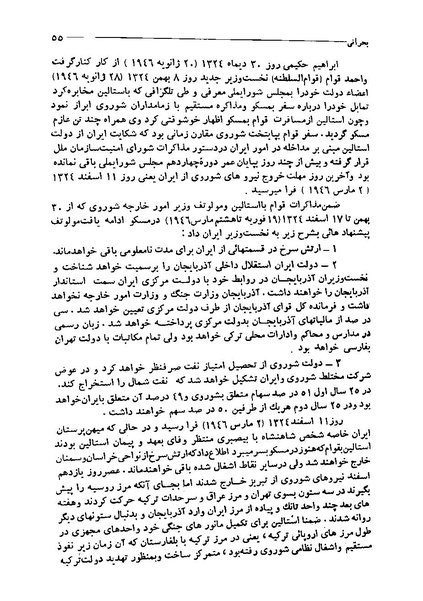 بحرانی ۵۵
ابراهیم حکیمی روز ۳۰ دیماه ۱۳۲۴ (۲۰ ژانویه ۱۹۴۶) از کار کنارگرفت
واحمد قوام (قوام‌السلطنه) نخست‌وزیر جدید روز ۸ بهمن ۱۳۲۴ (۲۸ ژانویه ۱۹۴۶)
اعضاء دولت خودرا بمجلس شورایملی معرفی و طی تلگرافی که باستالین مخابره‌کرد
تمایل خودرا درباره سفر بمسکو ومذاکره مستقیم با زمامداران شوروی ابراز نمود
وچون استالین ازمسافرت قوام بمسکو اظهار خوشوقتی کرد وی همراه چند تن عازم
مسکو گردید. سفر قوام بپایتخت شوروی مقارن زمانی بود که شکایت ایران از دولت
استالین مبنی بر مداخله در امور ایران دردستور مذاکرات شورای امنیت‌سازمان ملل
قرار گرفته و بیش از چند روز بپایان عمر دورهٔچهاردهم مجلس شورایملی باقی نمانده
بود وآخرین روز مهلت خروج نیرو های شوروی از ایران یعنی روز ۱۱ اسفند ۱۳۲۴
(۲ مارس ۱۹۴۶) فرا میرسید.
ضمن‌مذاکرات قوام بااستالین ومولوتف وزیر امور خارجه شوروی که از ۳۰
بهمن تا ۱۷ اسفند ۱۳۲۴(۱۹فوریه تاهشتم‌مارس۱۹۴۶) درمسکو ادامه یافت‌مولوتف
پیشنهاد هائی بشرح زیر به نخست‌وزیر ایران داد:
۱ – ارتش سرخ در قسمتهائی از ایران برای مدت نامعلومی باقی خواهدماند.
۲ – دولت ایران استقلال داخلی آذربایجان را برسمیت خواهد شناخت و
نخست‌وزیران آذربایجان در روابط خود با دولت مرکزی ایران سمت استاندار
آذربایجان را خواهند داشت. آذربایجان وزارت جنگ و وزارت امور خارجه نخواهد
داشت و فرمانده کل قوای آذربایجان از طرف دولت مرکزی تعیین خواهد شد. سی
در صد از مالیاتهای آذربایجان بدولت مرکزی پرداخته خواهد شد. زبان رسمی
در مدارس و محاکم وادارات محلی ترکی خواهد بود ولی تمام مکاتبات با دولت تهران
بفارسی خواهد بود.
۳ – دولت شوروی از تحصیل امتیاز نفت صرفنظر خواهد کرد و در عوض
شرکت مختلط شوروی وایران تشکیل خواهد شد که نفت شمال را استخراج کند.
در ۲۵ سال اول ۵۱ در صد سهام متعلق بشوروی و۴۹ درصد آن متعلق بایران‌خواهد
بود ودر ۲۵ سال دوم هریك از طرفین ۵۰ در صد سهم خواهند داشت.
روز۱۱ اسفند۱۳۲۴ (۲ مارس ۱۹۴۶) فرا رسید و در حالی که میهن‌پرستان
ایران خاصه شخص شاهنشاه با بیصبری منتظر وفای بعهد و پیمان استالین بودند
استالین‌بقوام‌که‌هنوزدرمسکوبسرمیبرد اطلاع‌دادکه‌ارتش‌سرخ‌ازنواحی‌خراسان‌وسمنان
خارج خواهند شد ولی درسایر نقاط اشغال شده باقی خواهندماند. عصرروز یازدهم
اسفند نیروهای شوروی از تبریز خارج شدند اما بجای آنکه مرز روسیه را پیش
بگیرند در سه ستون بسوی تهران و مرز عراق و سرحدات ترکیه حرکت کردند وهفته
های بعد چند واحد تانك و پیاده از مرز ایران وارد آذربایجان و بدنبال ستونهای دیگر
روانه شدند. ضمنا استالین برای تکمیل مانور های جنگی خود واحدهای مجهزی در
طول مرز های اروپائی ترکیه (یعنی در مرز ترکیه با بلغارستان که آن زمان زیر نفوذ
مستقیم واشغال نظامی شوروی رفته‌بود) متمرکز ساخت وبمنظور تهدید دولت‌ترکیه